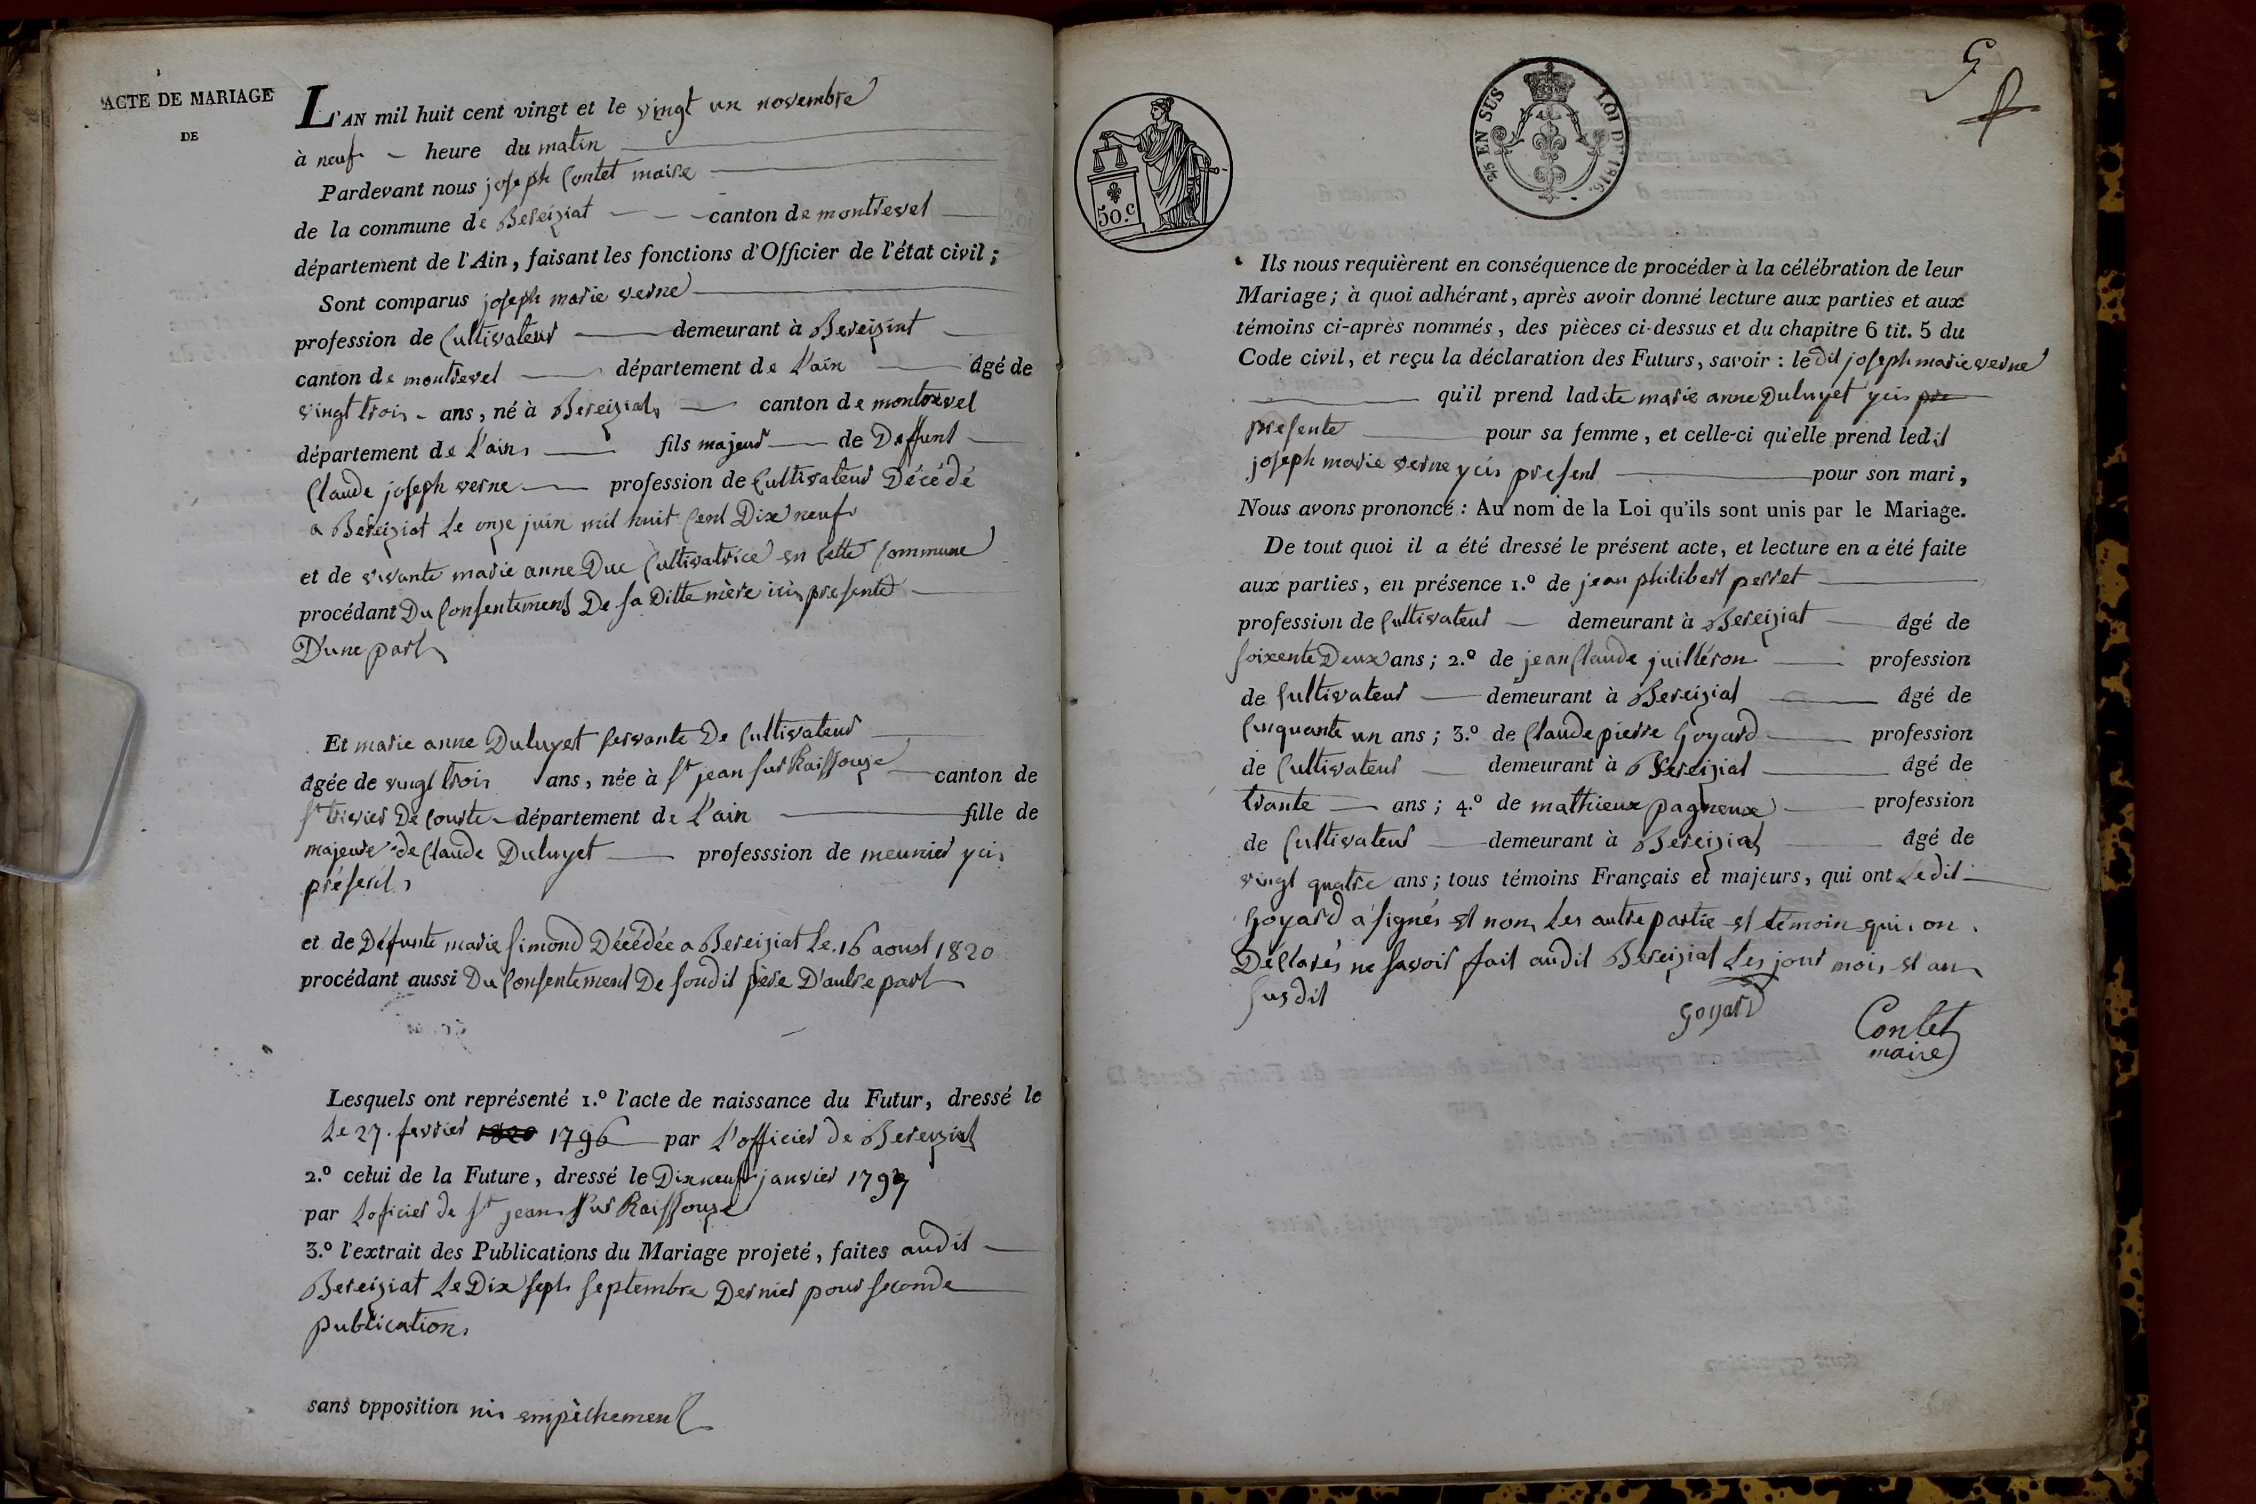 ACTE DE MARIAGE
DE
L'AN mil huit cent vingt et le vingt un novembre
à neuf heure du matin
Pardevant nous joseph Contet maire
de la commune de Bereiziat canton de montrevel
département de l'Ain, faisant les fonctions d'Officier de l'état civil;
Sont comparus joseph marie verne
profession de Cultivateur demeurant à Bereiziat
canton de montrevel département de L'ain âgé de
vingt trois ans, né à Bereiziat canton de montrevel
département de L'ain fils majeur de Deffunt
Claude joseph verne profession de Cultivateur Décédé
a Bereiziat Le onze juin mil huit Cent Dix neuf
et de vivante marie anne Duc Cultivatrice en Cette Commune
procédant Du Consentement De sa Ditte mère icis presente
D'une part
Et marie anne Duluyet servante De Cultivateur
âgée de vingt trois ans, née à St jean sur Raissouze canton de
St trivier De Courte département de L'ain fille de
majeure de Claude Duluyet professsion de meunier ycis
présent
et de Défunte marie simond Décédée a Bereiziat Le 16 aoust 1820
procédant aussi Du Consentement De soudit père D'autre part
Lesquels ont représenté 1.º l'acte de naissance du Futur, dressé le
Le 27 fevrier 1820 1796 par L'officier de Bereiziat
2.º celui de la Future, dressé le Dixneuf janvier 1797
par Loficier de St jean sur Raissouze
3.º l'extrait des Publications du Mariage projeté, faites audit
Bereiziat Le Dix sept septembre Dernier pour seconde
publication
sans opposition nis empèchement
50.c
2/5 EN SUS LOI DE 1816.
Ils nous requièrent en conséquence de procéder à la célébration de leur
Mariage; à quoi adhérant, après avoir donné lecture aux parties et aux
témoins ci-après nommés, des pièces ci-dessus et du chapitre 6 tit. 5 du
Code civil, et reçu la déclaration des Futurs, savoir: le dit joseph marie verne
qu'il prend ladite marie anne Duluyet ycis pre
presente pour sa femme, et celle-ci qu'elle prend ledit
joseph marie verne ycis present pour son mari,
Nous avons prononcé: Au nom de la Loi qu'ils sont unis par le Mariage.
De tout quoi il a été dressé le présent acte, et lecture en a été faite
aux parties, en présence 1.º de jean philibert perret
profession de Cultivateur demeurant à Bereiziat âgé de
soixente Deux ans; 2.º de jean Claude juilléron profession
de Cultivateur demeurant à Bereiziat âgé de
Cinquante un ans; 3.º de Claude pierre Goyard profession
de Cultivateur demeurant à Bereiziat âgé de
trante ans; 4.º de mathieux pagneux profession
de Cultivateur demeurant à Bereiziat âgé de
vingt quatre ans; tous témoins Français et majeurs, qui ont Ledit
Goyard a signés et non Les autre partie et témoin qui on
Déclarés ne savoir fait audit Bereiziat Les jour mois et an
susdit
Goyard
Contet
maire